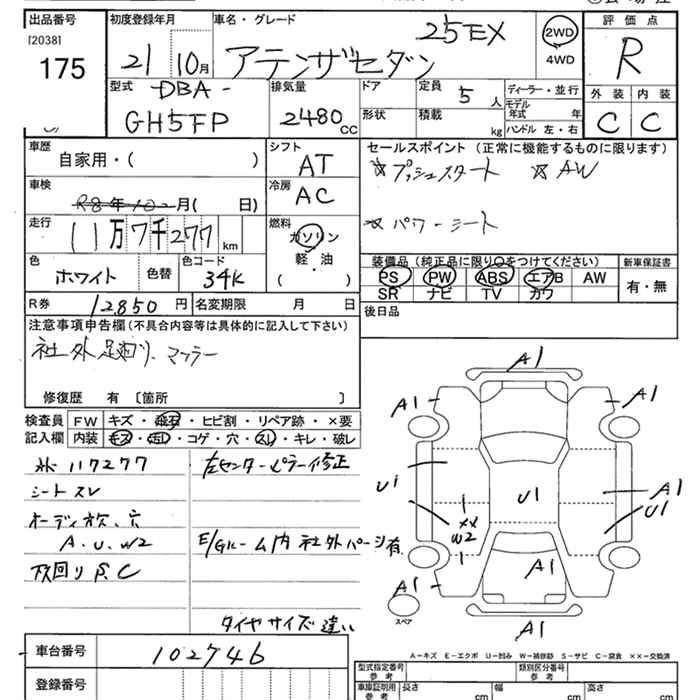 出品番号 初度登録年月 車名・グレード 評価点
[2038]
175
21 10月 アテンザセダン 25EX
2WD
4WD
R
型式 DBA-
GH5FP
排気量
2480 CC
ドア
形状
定員 5 人
積載 kg
ディーラー・並行
モデル年式 年
ハンドル 左・右
外装 内装
C C
車歴 自家用・( )
シフト AT
セールスポイント(正常に機能するものに限ります)
☆プッシュスタート ☆AW
車検 R8年10月( 日)
冷房 AC
☆パワーシート
走行 11万7千277km
燃料 ガソリン
軽・油
( )
色 ホワイト 色替 色コード 34K
装備品(純正品に限り○をつけてください) 新車保証書
PS PW ABS エアB AW
SR ナビ TV カワ
有・無
R券 12,850円 名変期限 月 日
後日品
注意事項申告欄(不具合内容等は具体的に記入して下さい)
社外足回り、マフラー
修復歴 有 〔箇所 〕
検査員記入欄 FW キズ・飛石・ヒビ割・リペア跡・×要
内装 キズ・汚レ・コゲ・穴・スレ・キレ・破レ
117277 左センターピラー修正
シートスレ
オーディオ欠、穴
A.U.W2 E/Gルーム内社外パーツ有
下回りS.C
タイヤサイズ違い
A1
A1 A1
U1 U1 A1
U1
XX
W2
A1
A1
A1
スペア
A-キズ E-エクボ U-凹み W-補修跡 S-サビ C-腐食 ××-交換済
車台番号 102746
登録番号
型式指定番号
参考
類別区分番号
参考
車庫証明用
参考
長さ cm 幅 cm 高さ cm